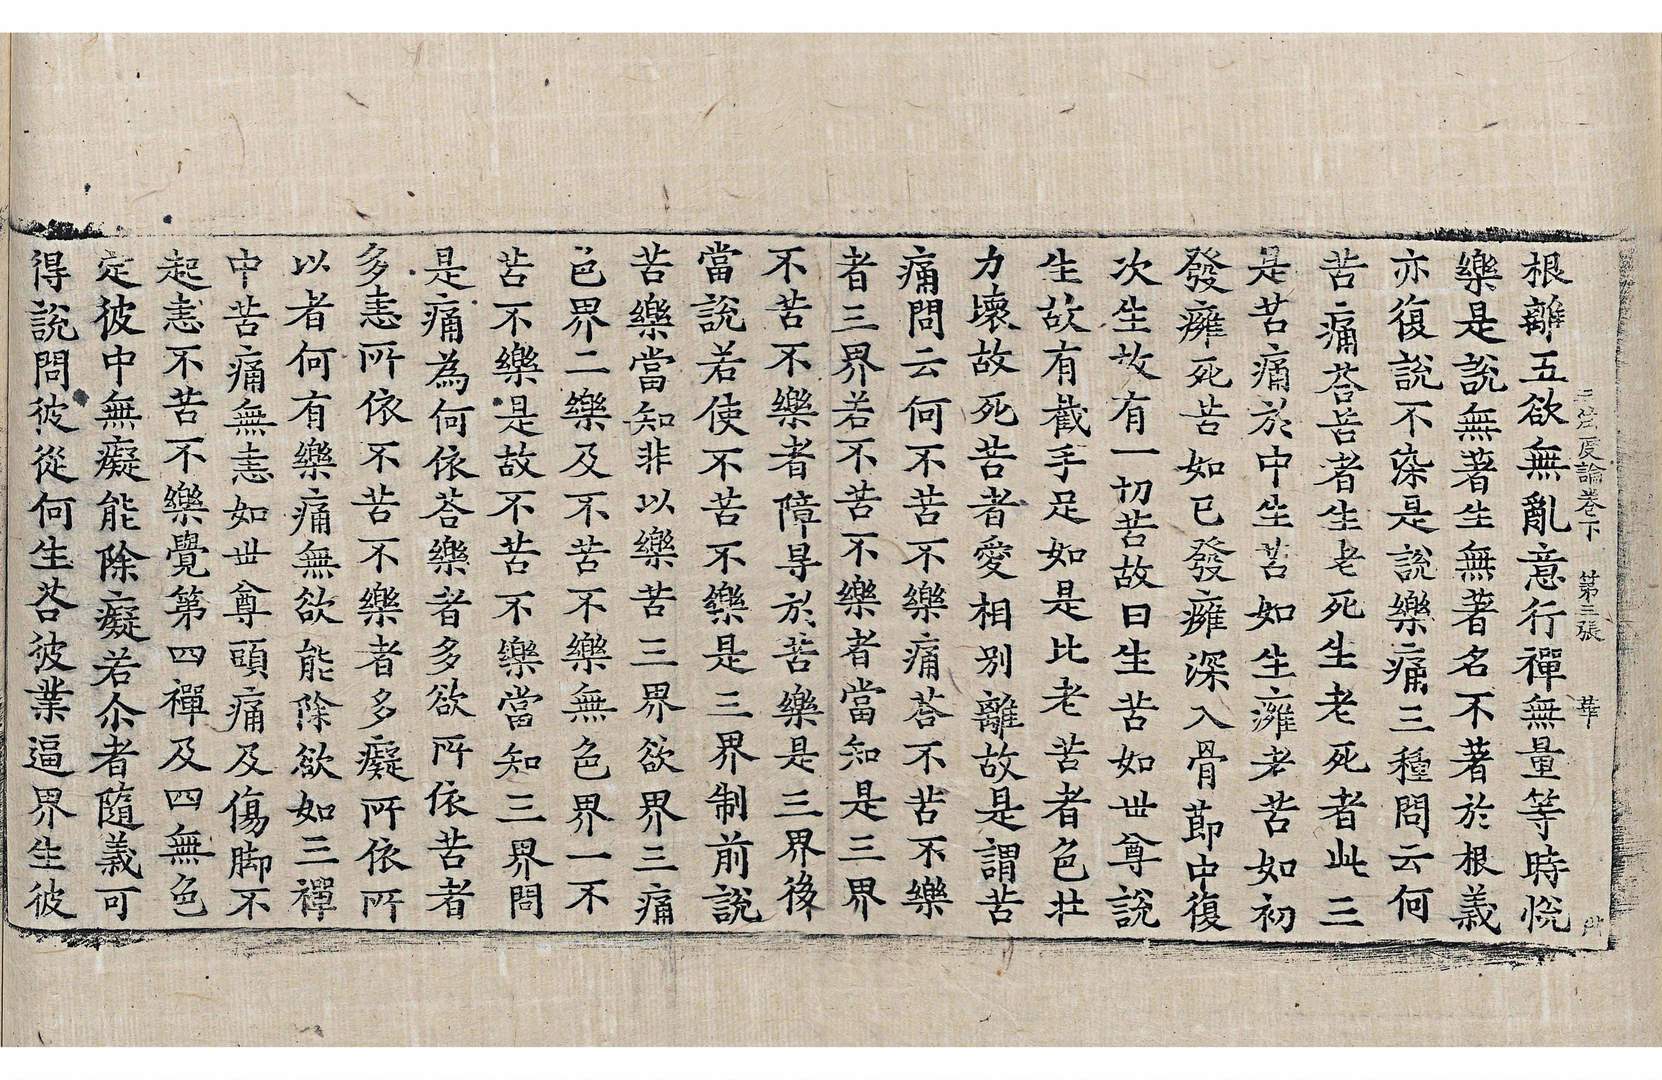 三法度論卷下 第三張 華
根離五欲無亂意行禪無量等時悅
樂是說無著生無著名不著於根義
亦復說不染是說樂痛三種問云何
苦痛荅苦者生老死生老死者此三
是苦痛於中生苦如生癰老苦如初
發癰死苦如已發癰深入骨節中復
次生故有一切苦故曰生苦如世尊說
生故有截手足如是比老苦者色壯
力壞故死苦者愛相別離故是謂苦
痛問云何不苦不樂痛荅不苦不樂
者三界若不苦不樂者當知是三界
不苦不樂者障㝵於苦樂是三界後
當說若使不苦不樂是三界制前說
苦樂當知非以樂苦三界欲界三痛
色界二樂及不苦不樂無色界一不
苦不樂是故不苦不樂當知三界問
是痛為何依荅樂者多欲所依苦者
多恚所依不苦不樂者多癡所依所
以者何有樂痛無欲能除欲如三禪
中苦痛無恚如世尊頭痛及傷脚不
起恚不苦不樂覺第四禪及四無色
定彼中無癡能除癡若尒者隨義可
得說問彼從何生荅彼業逼界生彼